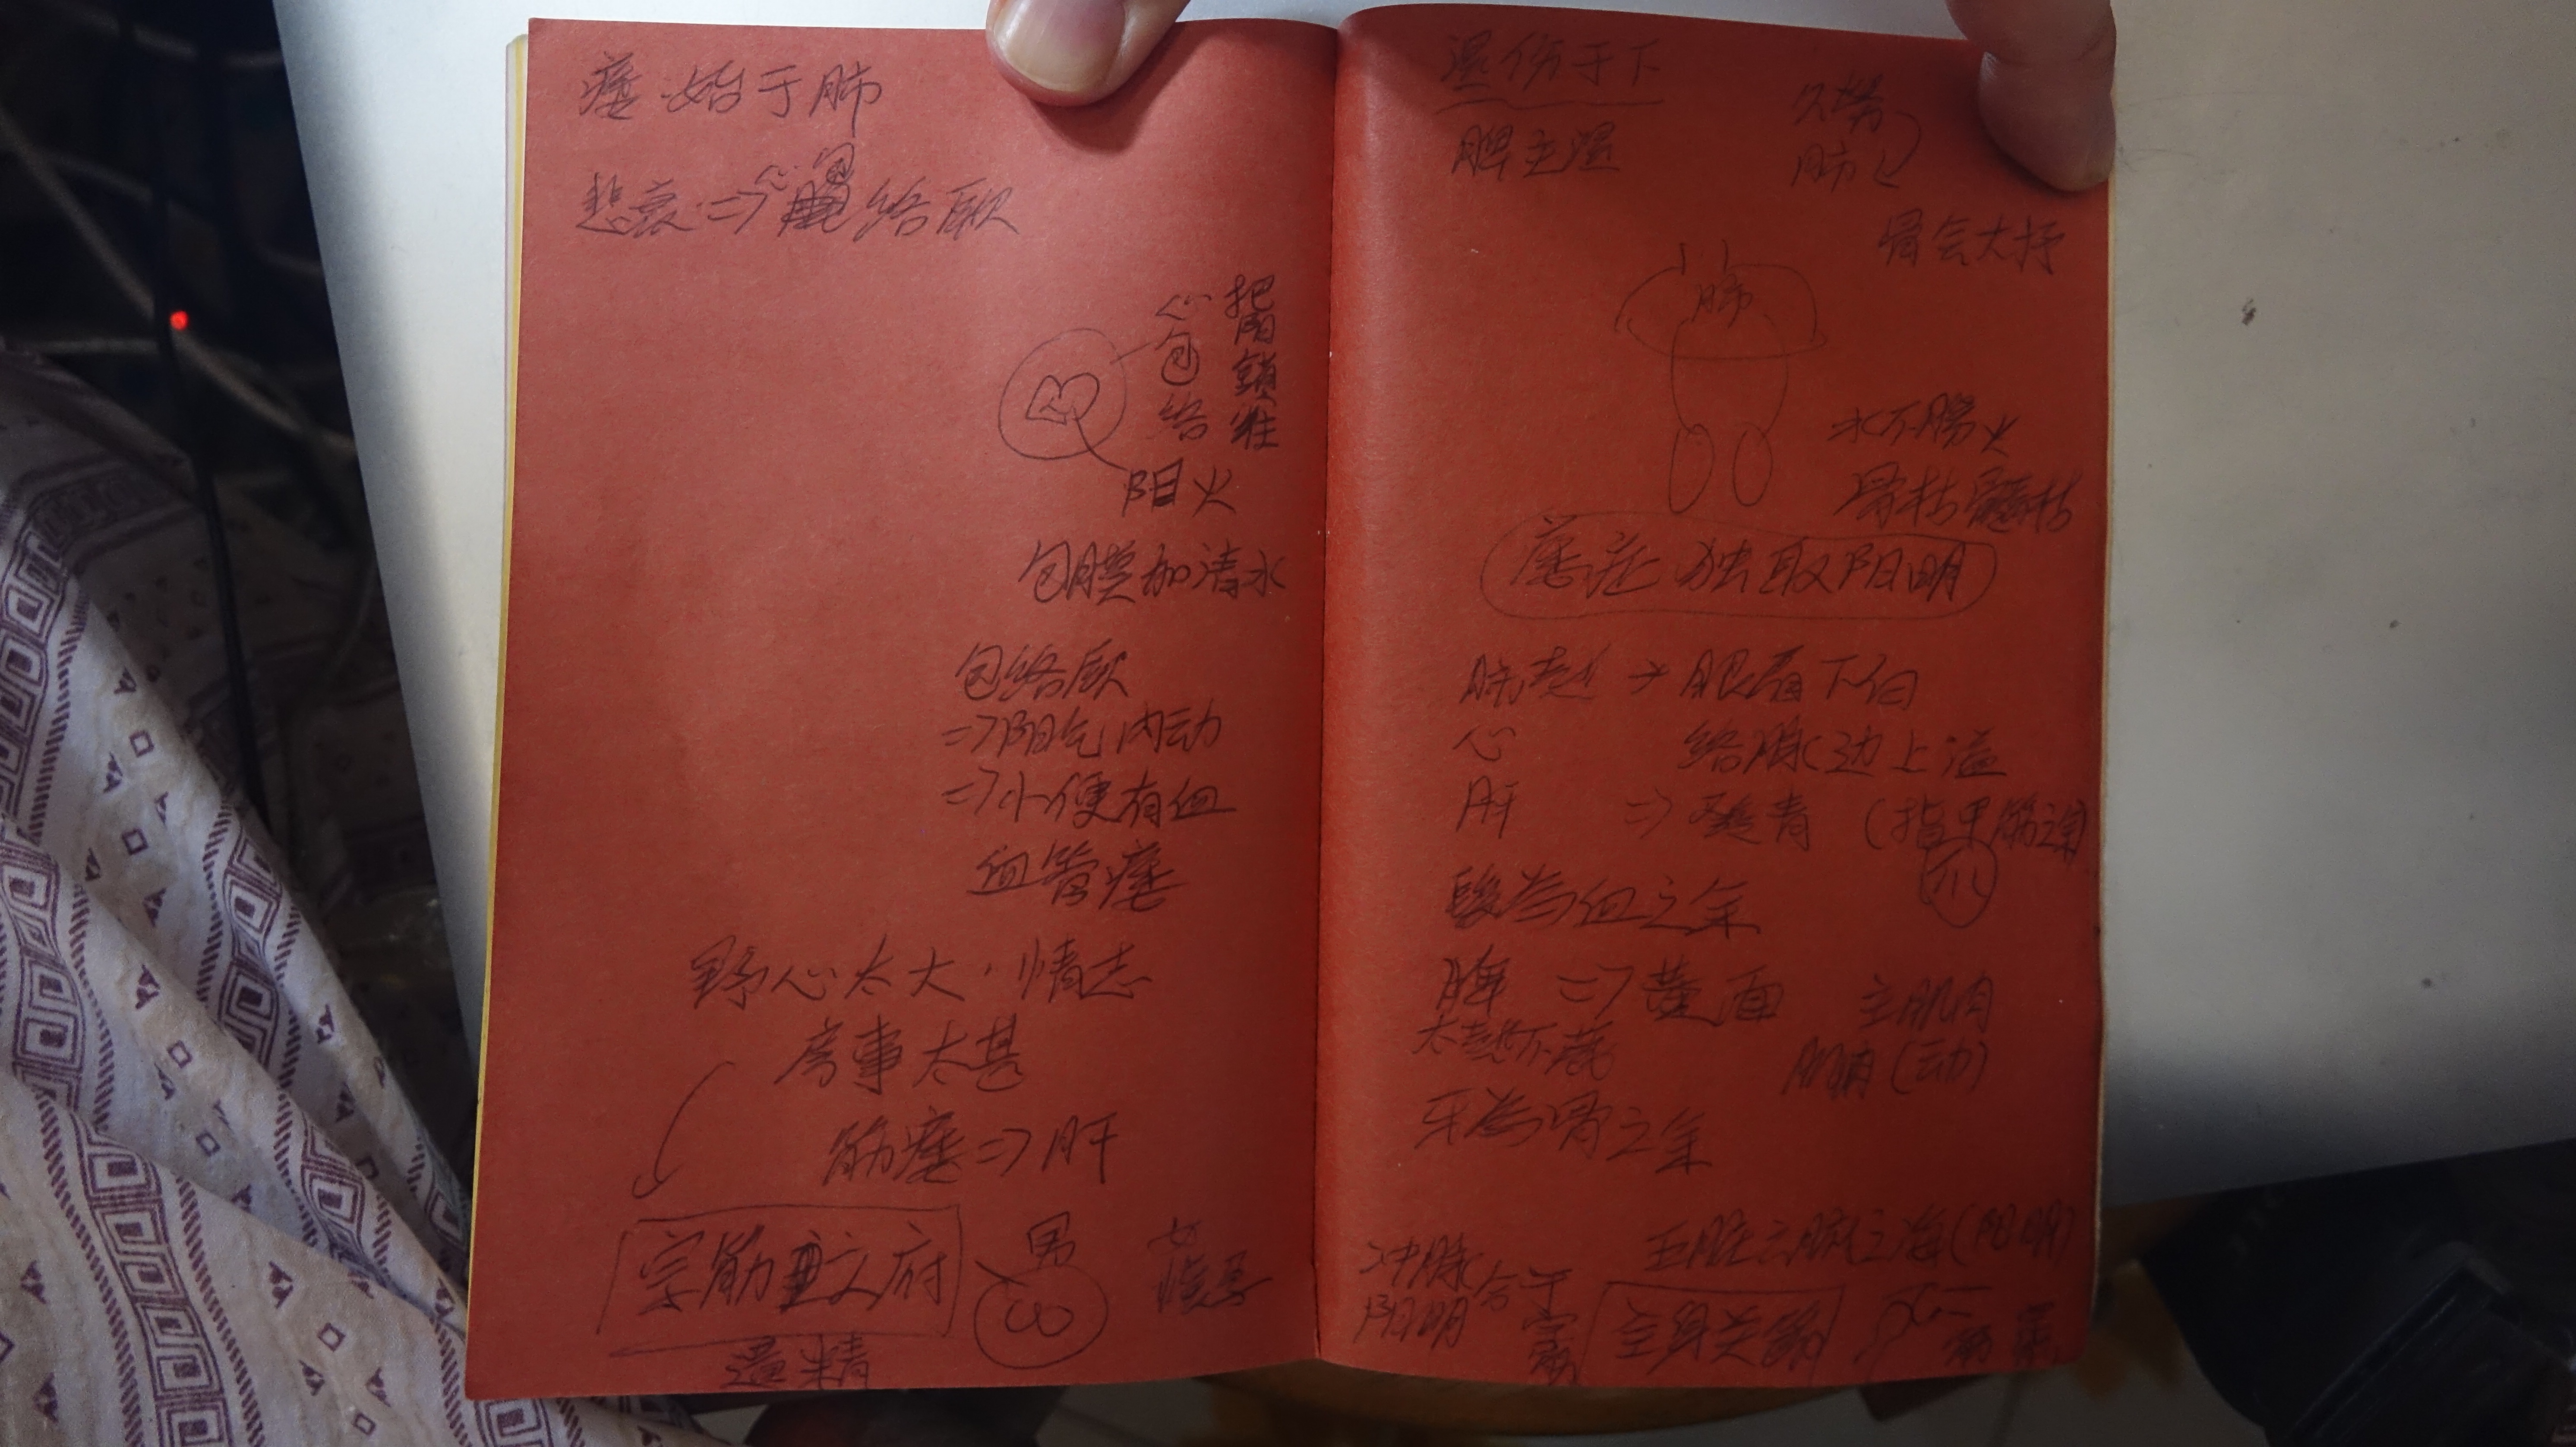 痿始于肺
悲哀⇒心包络厥
心包络
把陽鎖住
阳火
包膜加清水
包络厥
⇒阳气内动
⇒小便有血
血管痿
野心太大·情志
房事太甚
筋痿⇒肝
宗筋之府
男
女
遗精
湿伤于下
脾主湿
久劳
肺
骨会大抒
肺
水不勝火
骨枯髓枯
痿症独取阳明
肺热→眼看下白
心 络脉边上溢
肝 ⇒ 青(指甲筋之余)
爪
髮為血之余
脾⇒黄面 主肌肉
太热不 肌肉(动)
牙為骨之余
五脏六腑之海(阳明)
冲脉
阳明
合于宗筋
主身关节